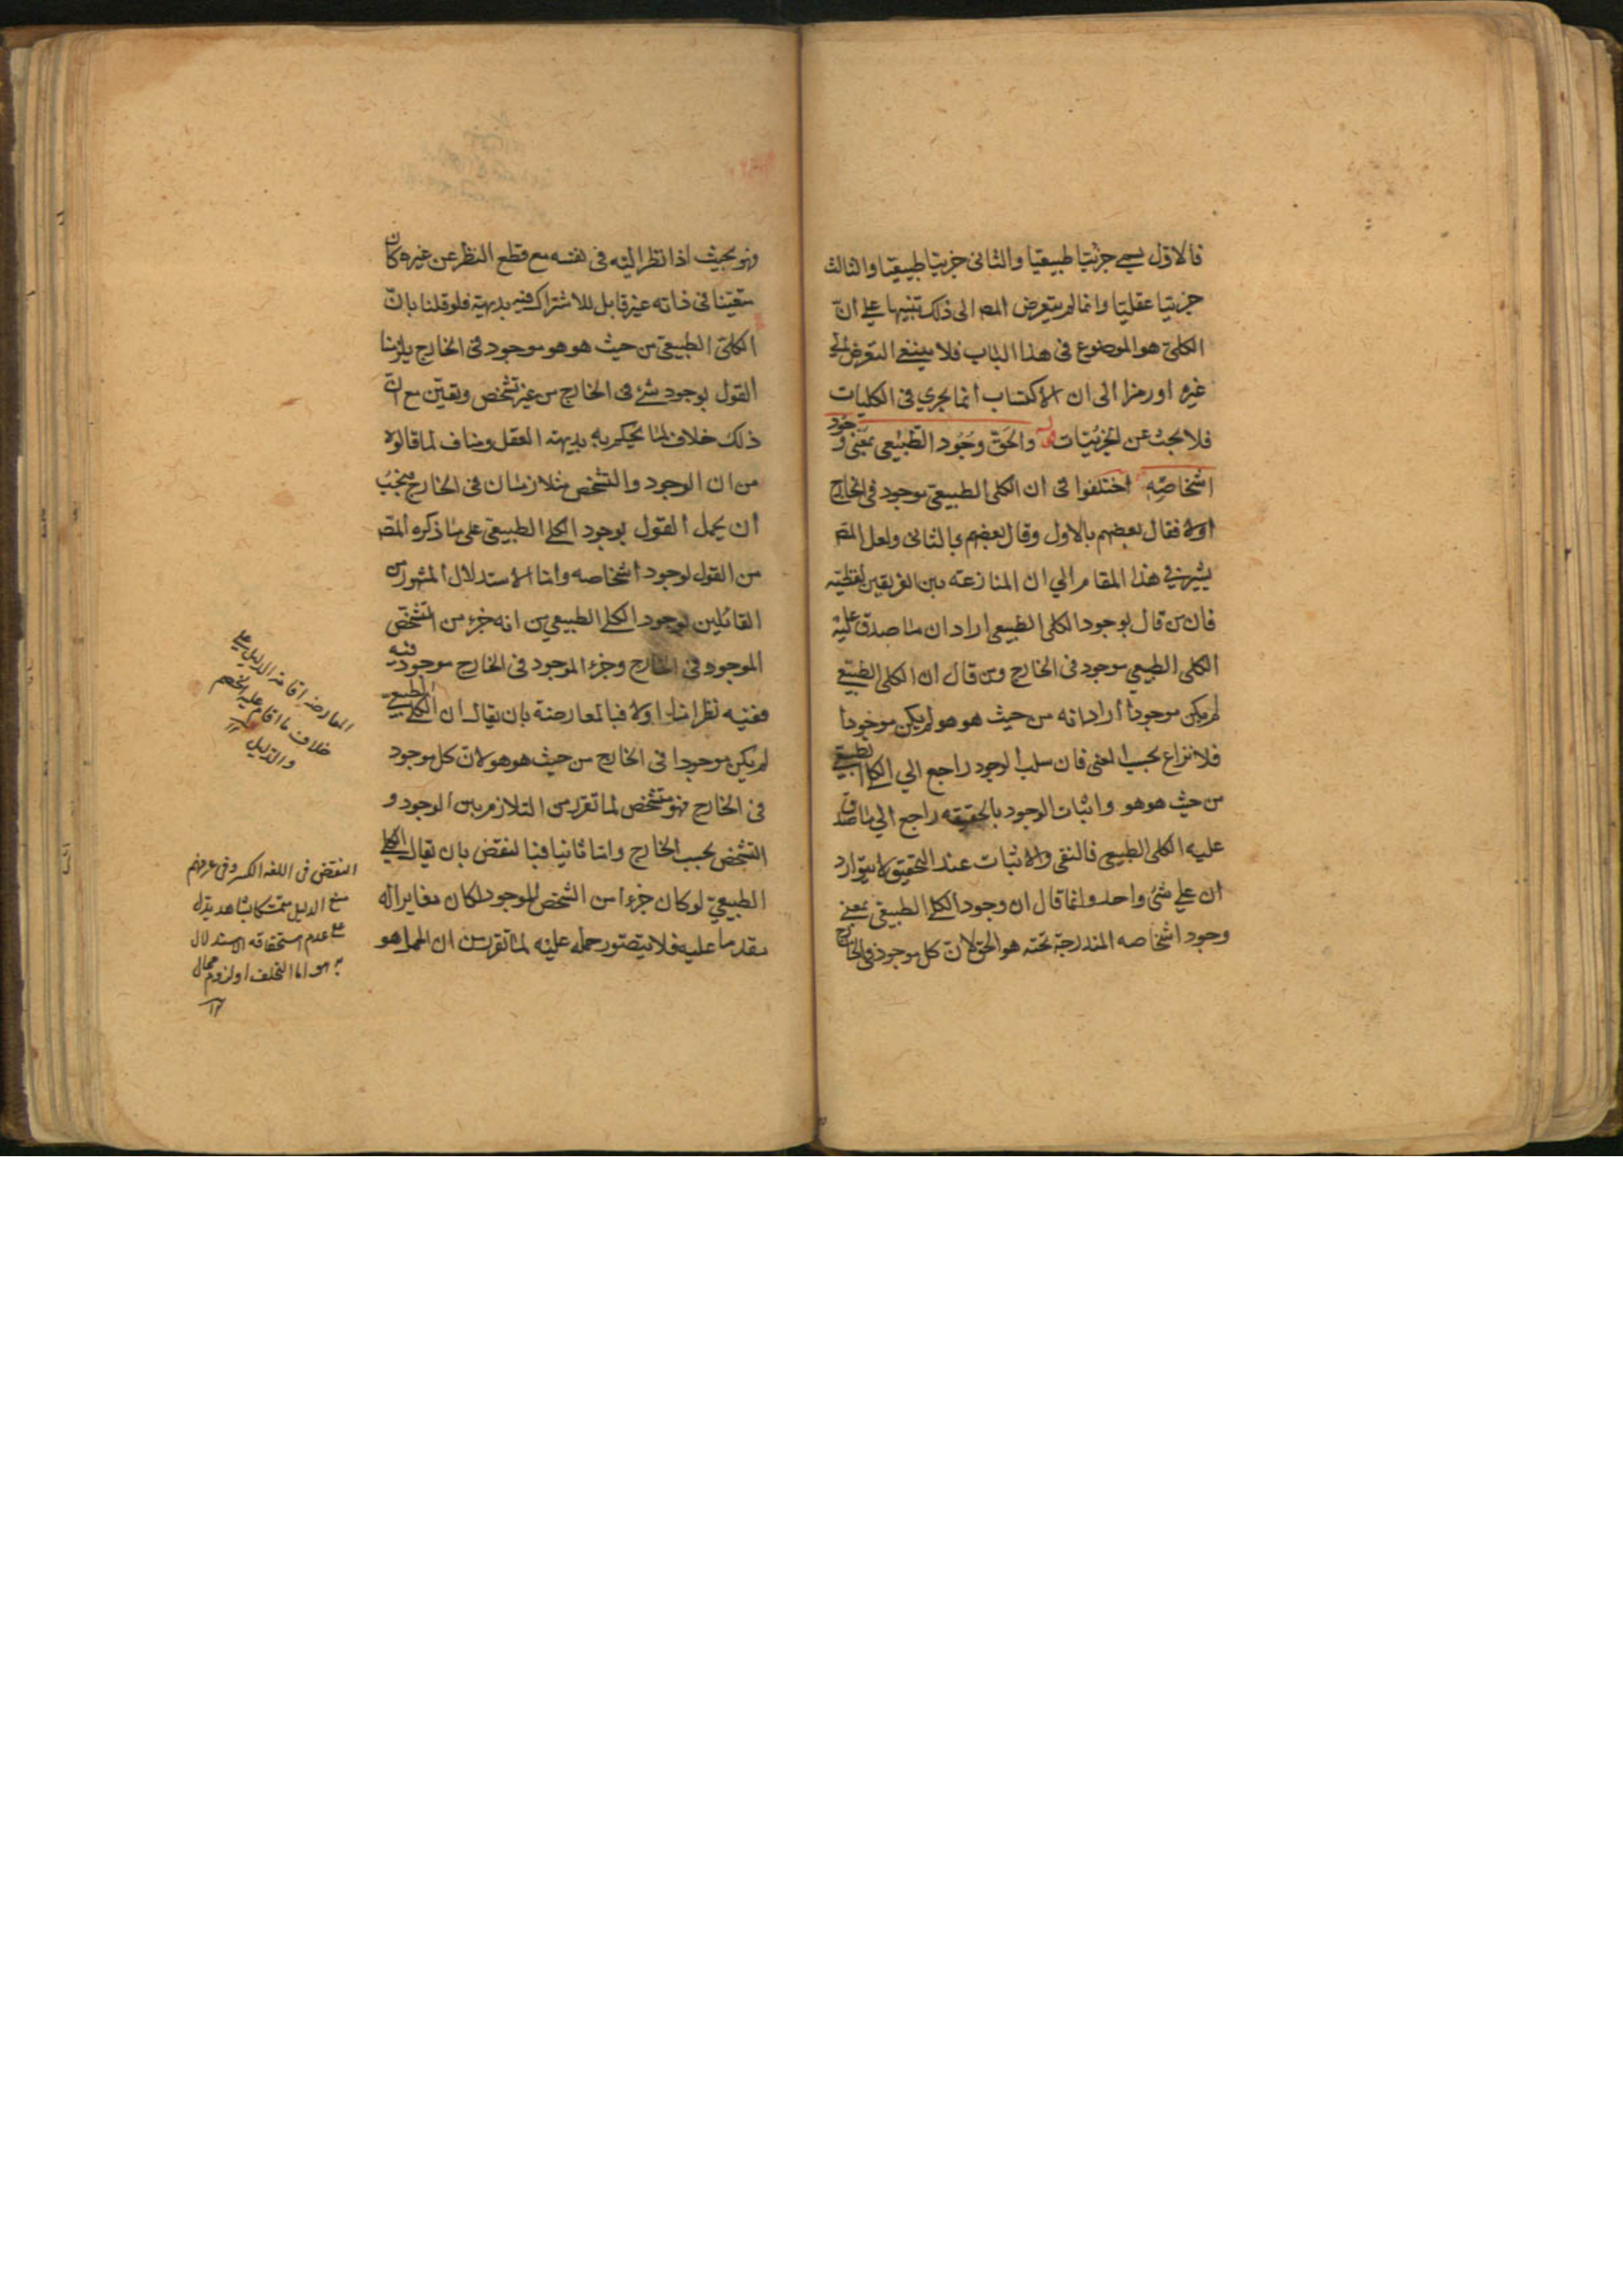 فالاول يسمى جزئيا طبيعيا والثانى جزئيا طبيعيا والثالث
جزئيا عقليا وانما لم يتعرض المصـ الى ذلك تنبيها على انّ
الكلى هو الموضوع فى هذا الباب فلا ينبغى التعرض الى
غيره او رمزا الى ان الاكتساب انما يجري فى الكليات
فلا بحث عن الجزئيات والحق وجود الطبيعى بمعنى وجود
اشخاصه اختلفوا فى ان الكلى الطبيعى موجود فى الخارج
اولا فقال بعضهم بالاول وقال بعضهم بالثانى ولعل المصـ
يشير فى هذا المقام الي ان المنازعة بين الفريقين لفظية
فان من قال بوجود الكلى الطبيعى اراد ان ما صدق عليه
الكلى الطبيعي موجود فى الخارج ومن قال ان الكلى الطبيعى
لم يكن موجودا اراد انه من حيث هو هو لم يكن موجودا
فلا نزاع بحسب المعنى فان سلب الوجود راجع الي الكلى الطبيعى
من حيث هو هو واثبات الوجود بالحقيقة راجع الي ما صدق
عليه الكلى الطبيعى فالنفى والاثبات عند التحقيق لا يتوارد
ان علي شئ واحد وانما قال ان وجود الكلى الطبيعى بمعنى
وجود اشخاصه المندرجة تحته هو الحق لانّ كل موجود فى الخارج
فهو بحيث اذا نظر اليه فى نفسه مع قطع النظر عن غيره كان
متعينا فى ذاته غير قابل للاشتراك فيه بديهة فلو قلنا بانّ
الكلى الطبيعى من حيث هو هو موجود فى الخارج يلزمنا
القول بوجود شئ فى الخارج من غير تشخص وتعين مع انّ
ذلك خلاف لما يحكم به بديهة العقل ومناف لما قالوه
من ان الوجود والتشخص متلازمان فى الخارج فيجب
ان يحمل القول بوجود الكلى الطبيعى على ما ذكره المصـ
من القول بوجود اشخاصه واما الاستدلال المشهور من
القائلين بوجود الكلى الطبيعي من انه جزء من الشخص
الموجود فى الخارج وجزء الموجود فى الخارج موجود فيه
ففيه نظر اما اولا فبالمعارضة بان يقال ان الكلى الطبيعى
لم يكن موجودا فى الخارج من حيث هو هو لانّ كل موجود
فى الخارج فهو متشخص لما تقرر من التلازم بين الوجود و
التشخص بحسب الخارج واما ثانيا فبالنقض بان يقال الكلى
الطبيعيّ لو كان جزءا من الشخص الموجود لكان مغايرا له
مقدما عليه فلا يتصور حمله عليه لما تقرر من ان الحمل هو
المعارضة اقامة الدليل على
خلاف ما اقام عليه الخصم
والدليل ١٢
النقض فى اللغة الكسر وفى عرفهم
منع الدليل متمسكا بشاهد يدل
على عدم استحقاقه الاستدلال
به هو اما التخلف او لزوم محال
١٢